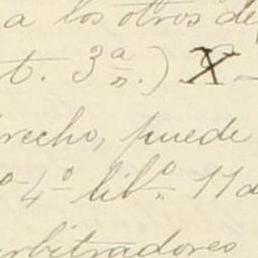 a los otros de
t. 3ª n.) X
recho, puede
4º libº. 11 a
rbitradores